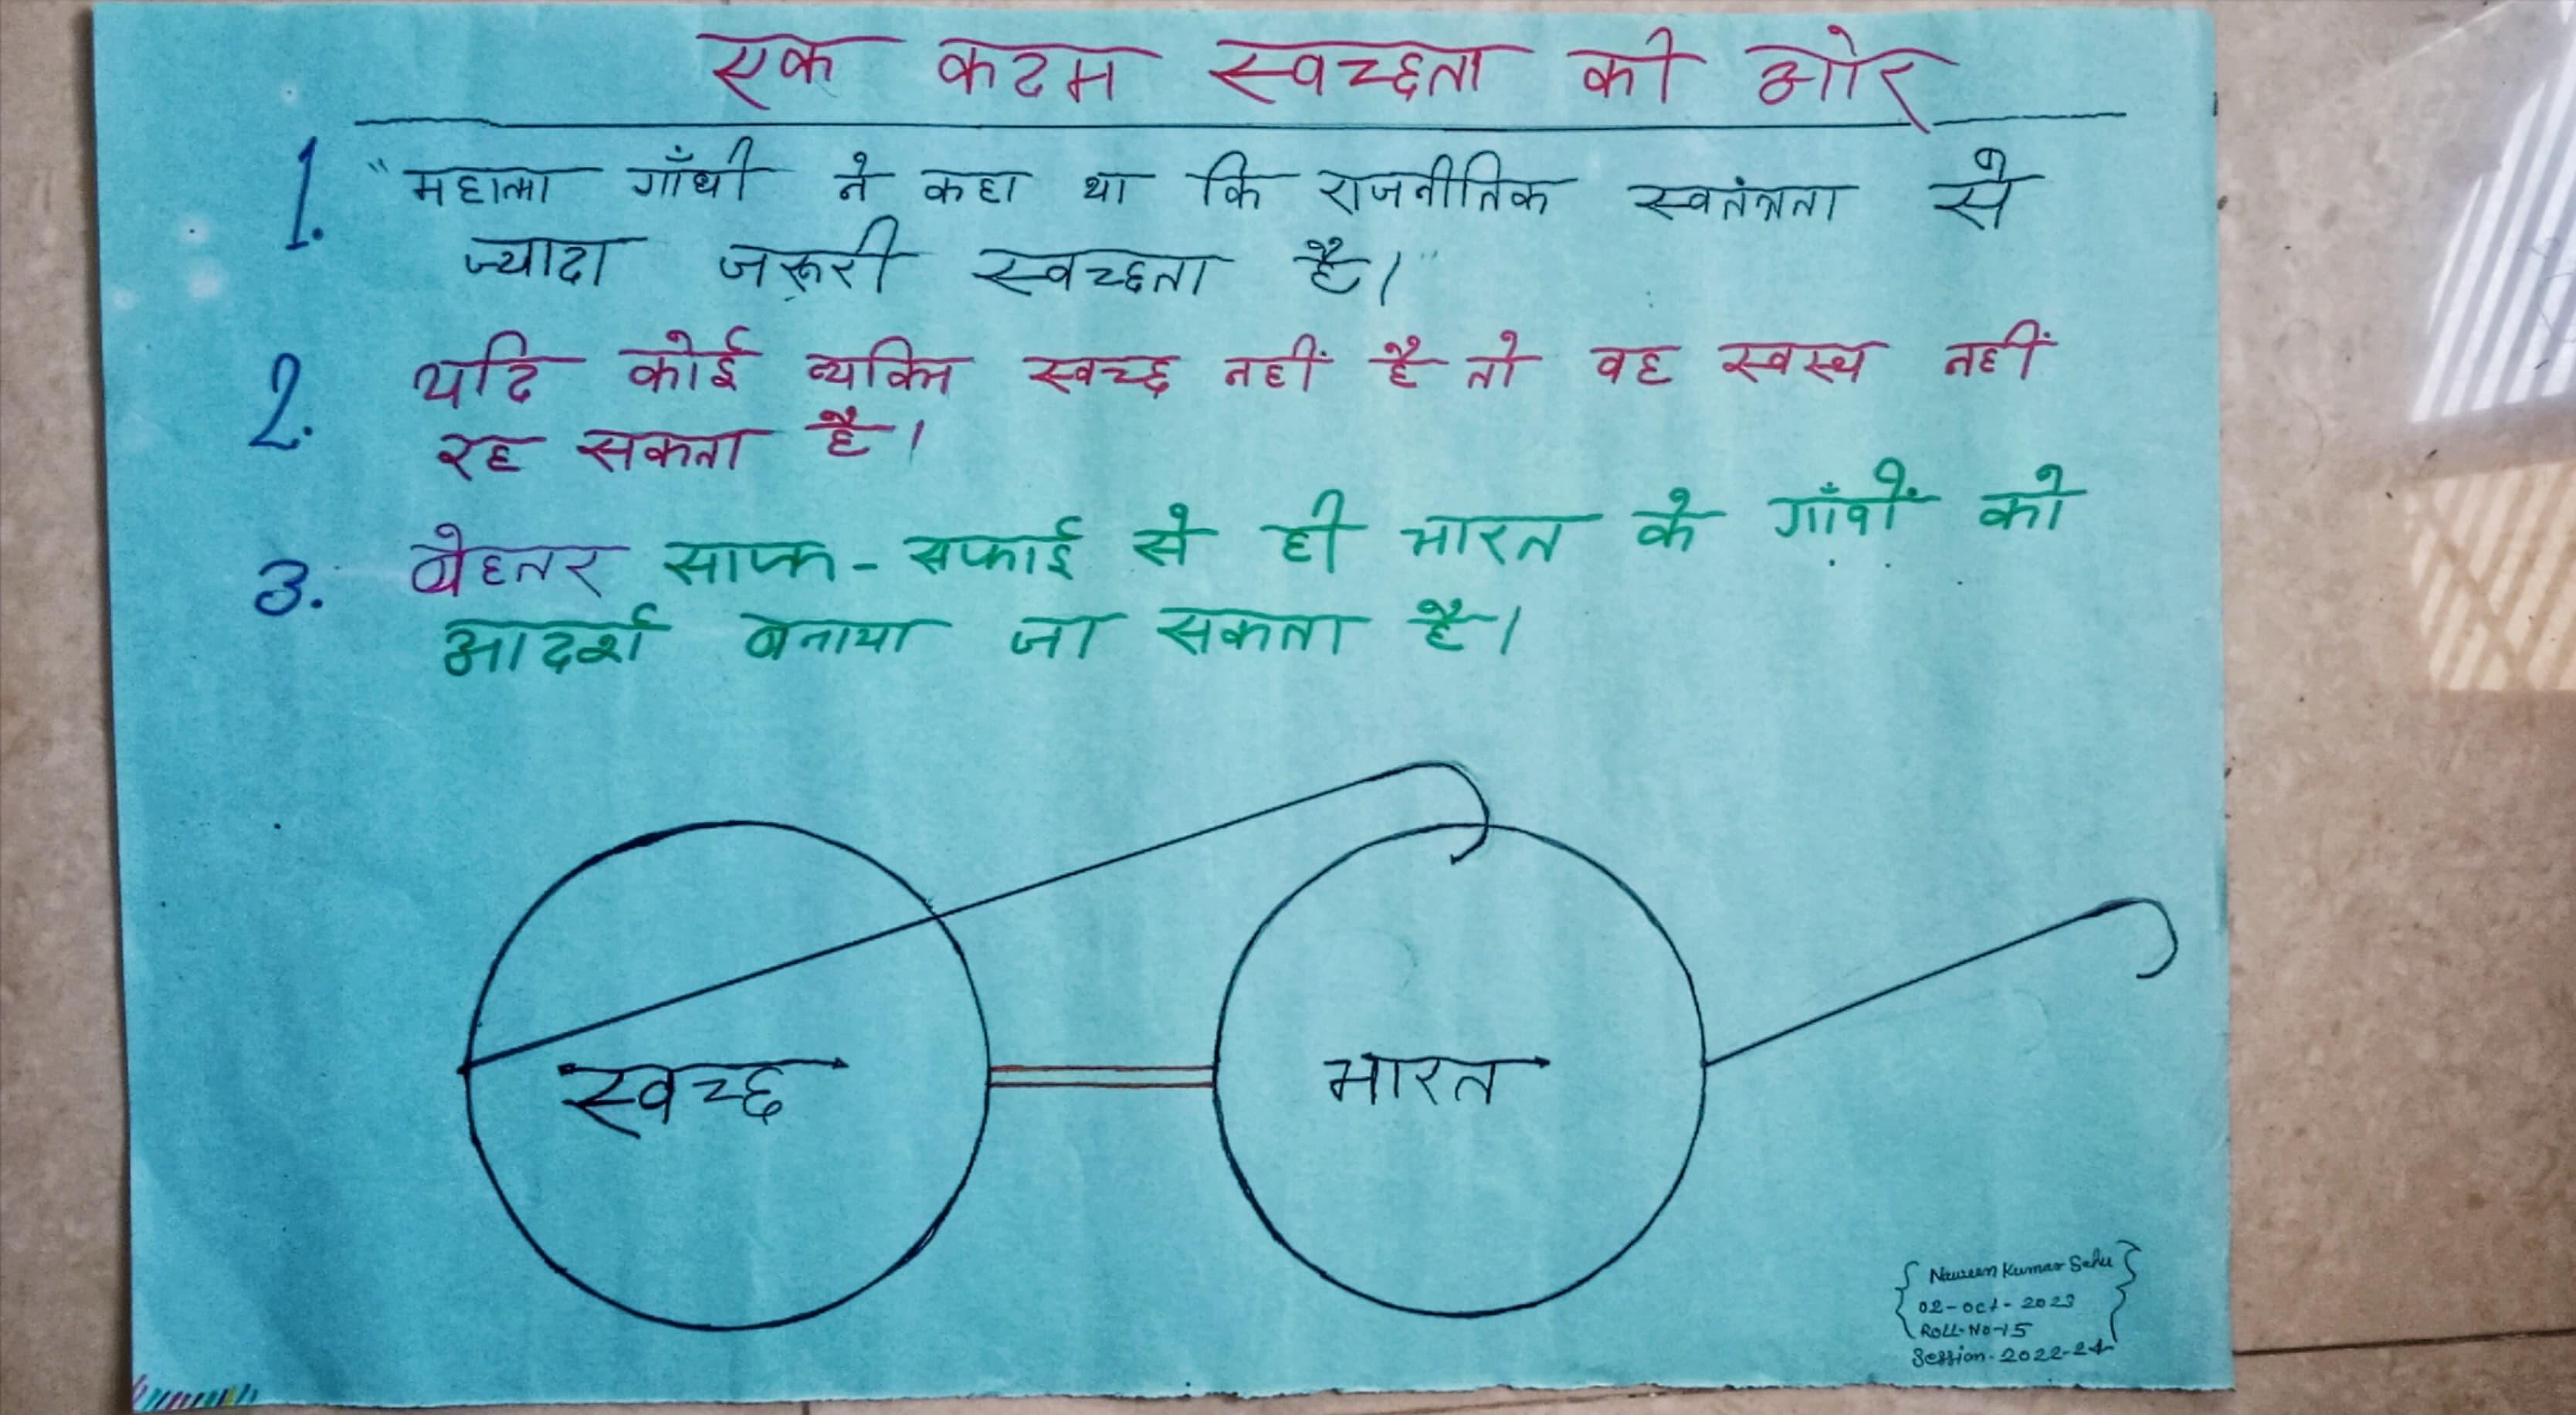 एक कदम स्वच्छता की ओर
1. "महात्मा गाँधी ने कहा था कि राजनीतिक स्वतंत्रता से
ज्यादा जरूरी स्वच्छता है।"
2. यदि कोई व्यक्ति स्वच्छ नहीं है तो वह स्वस्थ नहीं
रह सकता है।
3. बेहतर साफ-सफाई से ही भारत के गाँवों को
आदर्श बनाया जा सकता है।
स्वच्छ भारत
Naveen Kumar Sahu
02-Oct-2023
Roll-No-15
Session-2022-24